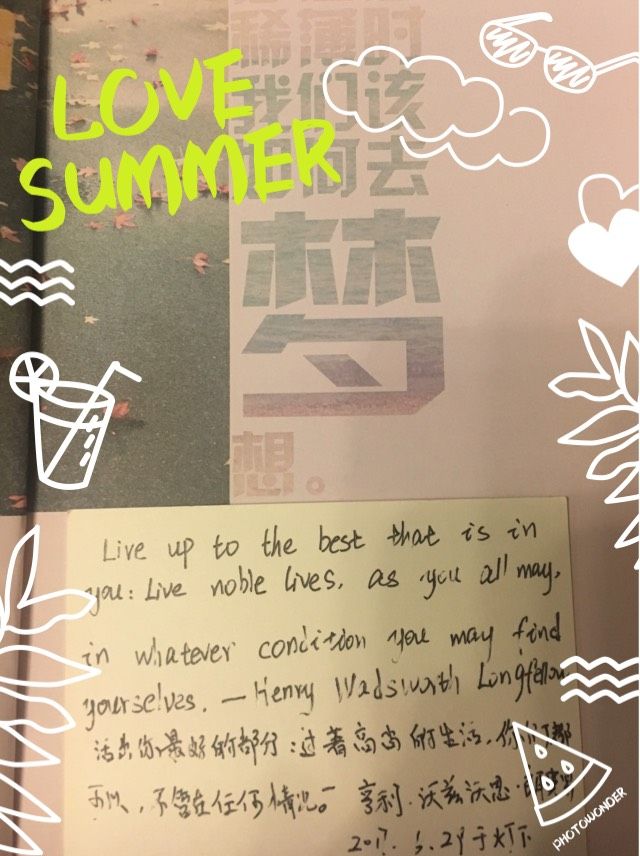 LOVE
SUMMER
稀薄时
我们该
如何去
梦
想。
Live up to the best that is in
you: Live noble lives, as you all may,
in whatever condition you may find
yourselves. — Henry Wadsworth Longfellow
活出你最好的部分：过着高尚的生活，你们都
可以，不管在任何情况。亨利·沃兹沃思·
2017. 5. 29 于灯下
PHOTOWONDER